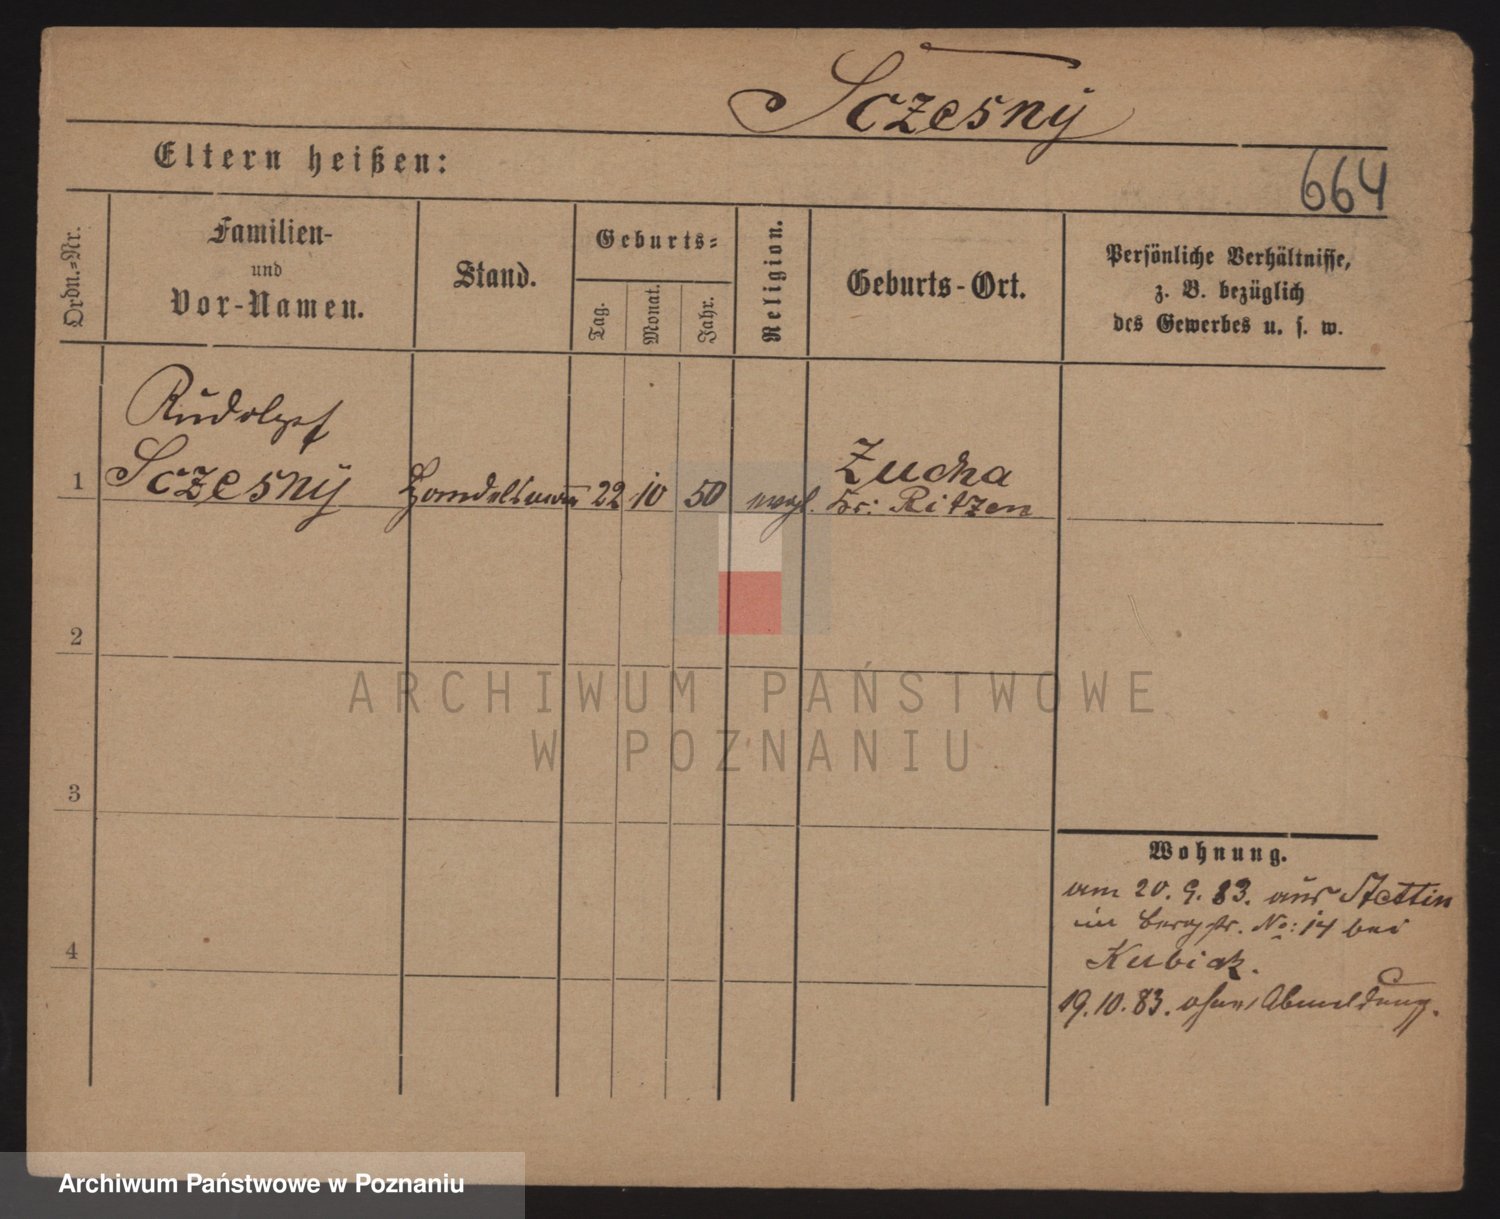 Sczesny
Eltern heißen:
664
Ordn.-Nr.
Familien-
und
Vor-Namen.
Stand.
Geburts-
Tag.
Monat.
Jahr.
Religion.
Geburts-Ort.
Persönliche Verhältnisse,
z. B. bezüglich
des Gewerbes u. s. w.
Rudolph
1 Sczesny Handelsmann 22 10 50 evgl. Zucha
Kr: Ritzen
2
3
4
Wohnung.
am 20. 9. 83. aus Stettin
in Bergstr. No: 14 bei
Kubiak.
19. 10. 83. ohne Abmeldung.
ARCHIWUM PAŃSTWOWE
W POZNANIU
Archiwum Państwowe w Poznaniu